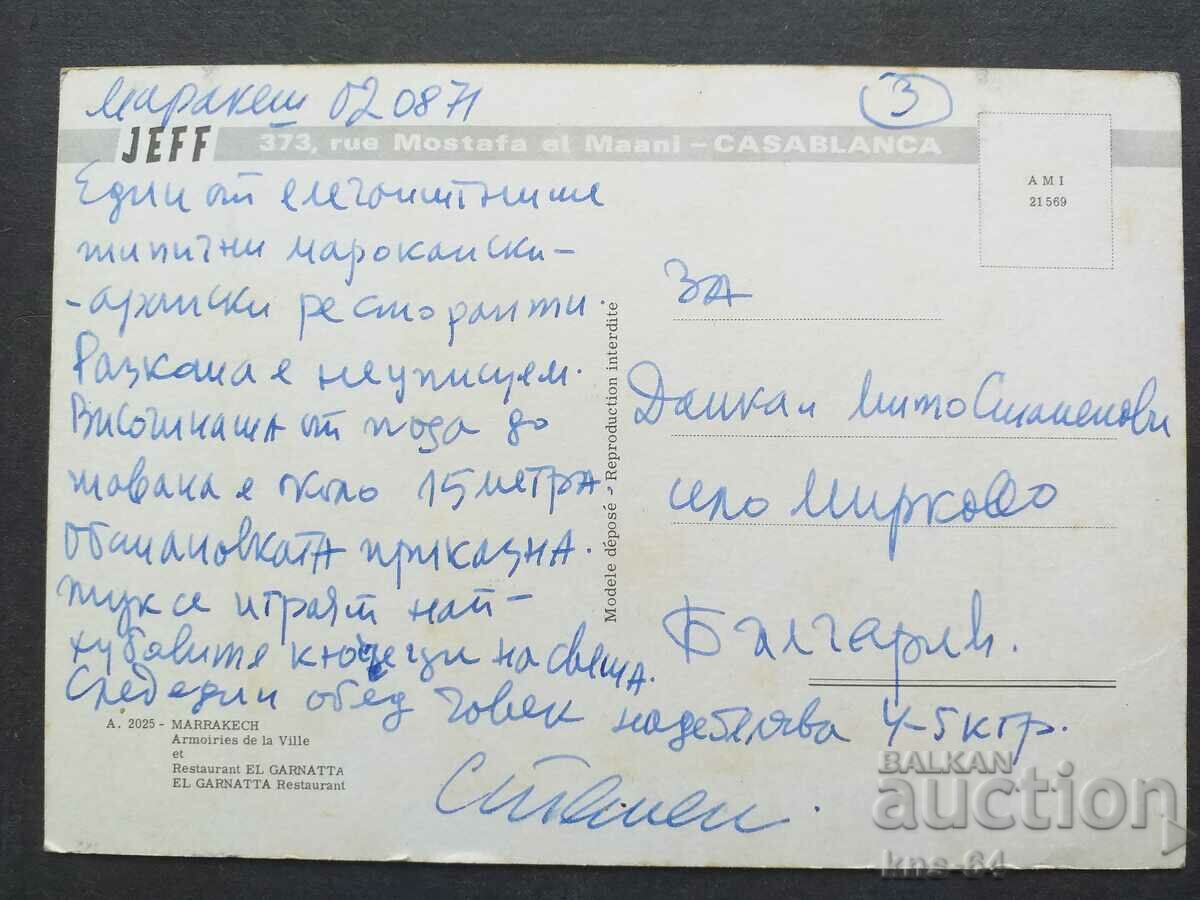 Маракеш 02 08 71
3
JEFF 373, rue Mostafa el Maani - CASABLANCA
Един от елегантните
типични марокански-
-арапски ресторанти.
Разкоша е неуписуем.
Височината от пода до
тавана е около 15 метра.
Обстановката приказна.
тук се играят най-
хубавите кючеци на света.
След един обед човек надебелява 4-5 кгр.
Стамен.
A. 2025 - MARRAKECH
Armoiries de la Ville
et
Restaurant EL GARNATTA
EL GARNATTA Restaurant
Modele déposé - Reproduction interdite
AMI
21 569
ЗА
Данка и Мито Стаменови
село Мирково
България.
BALKAN
auction
kns-64